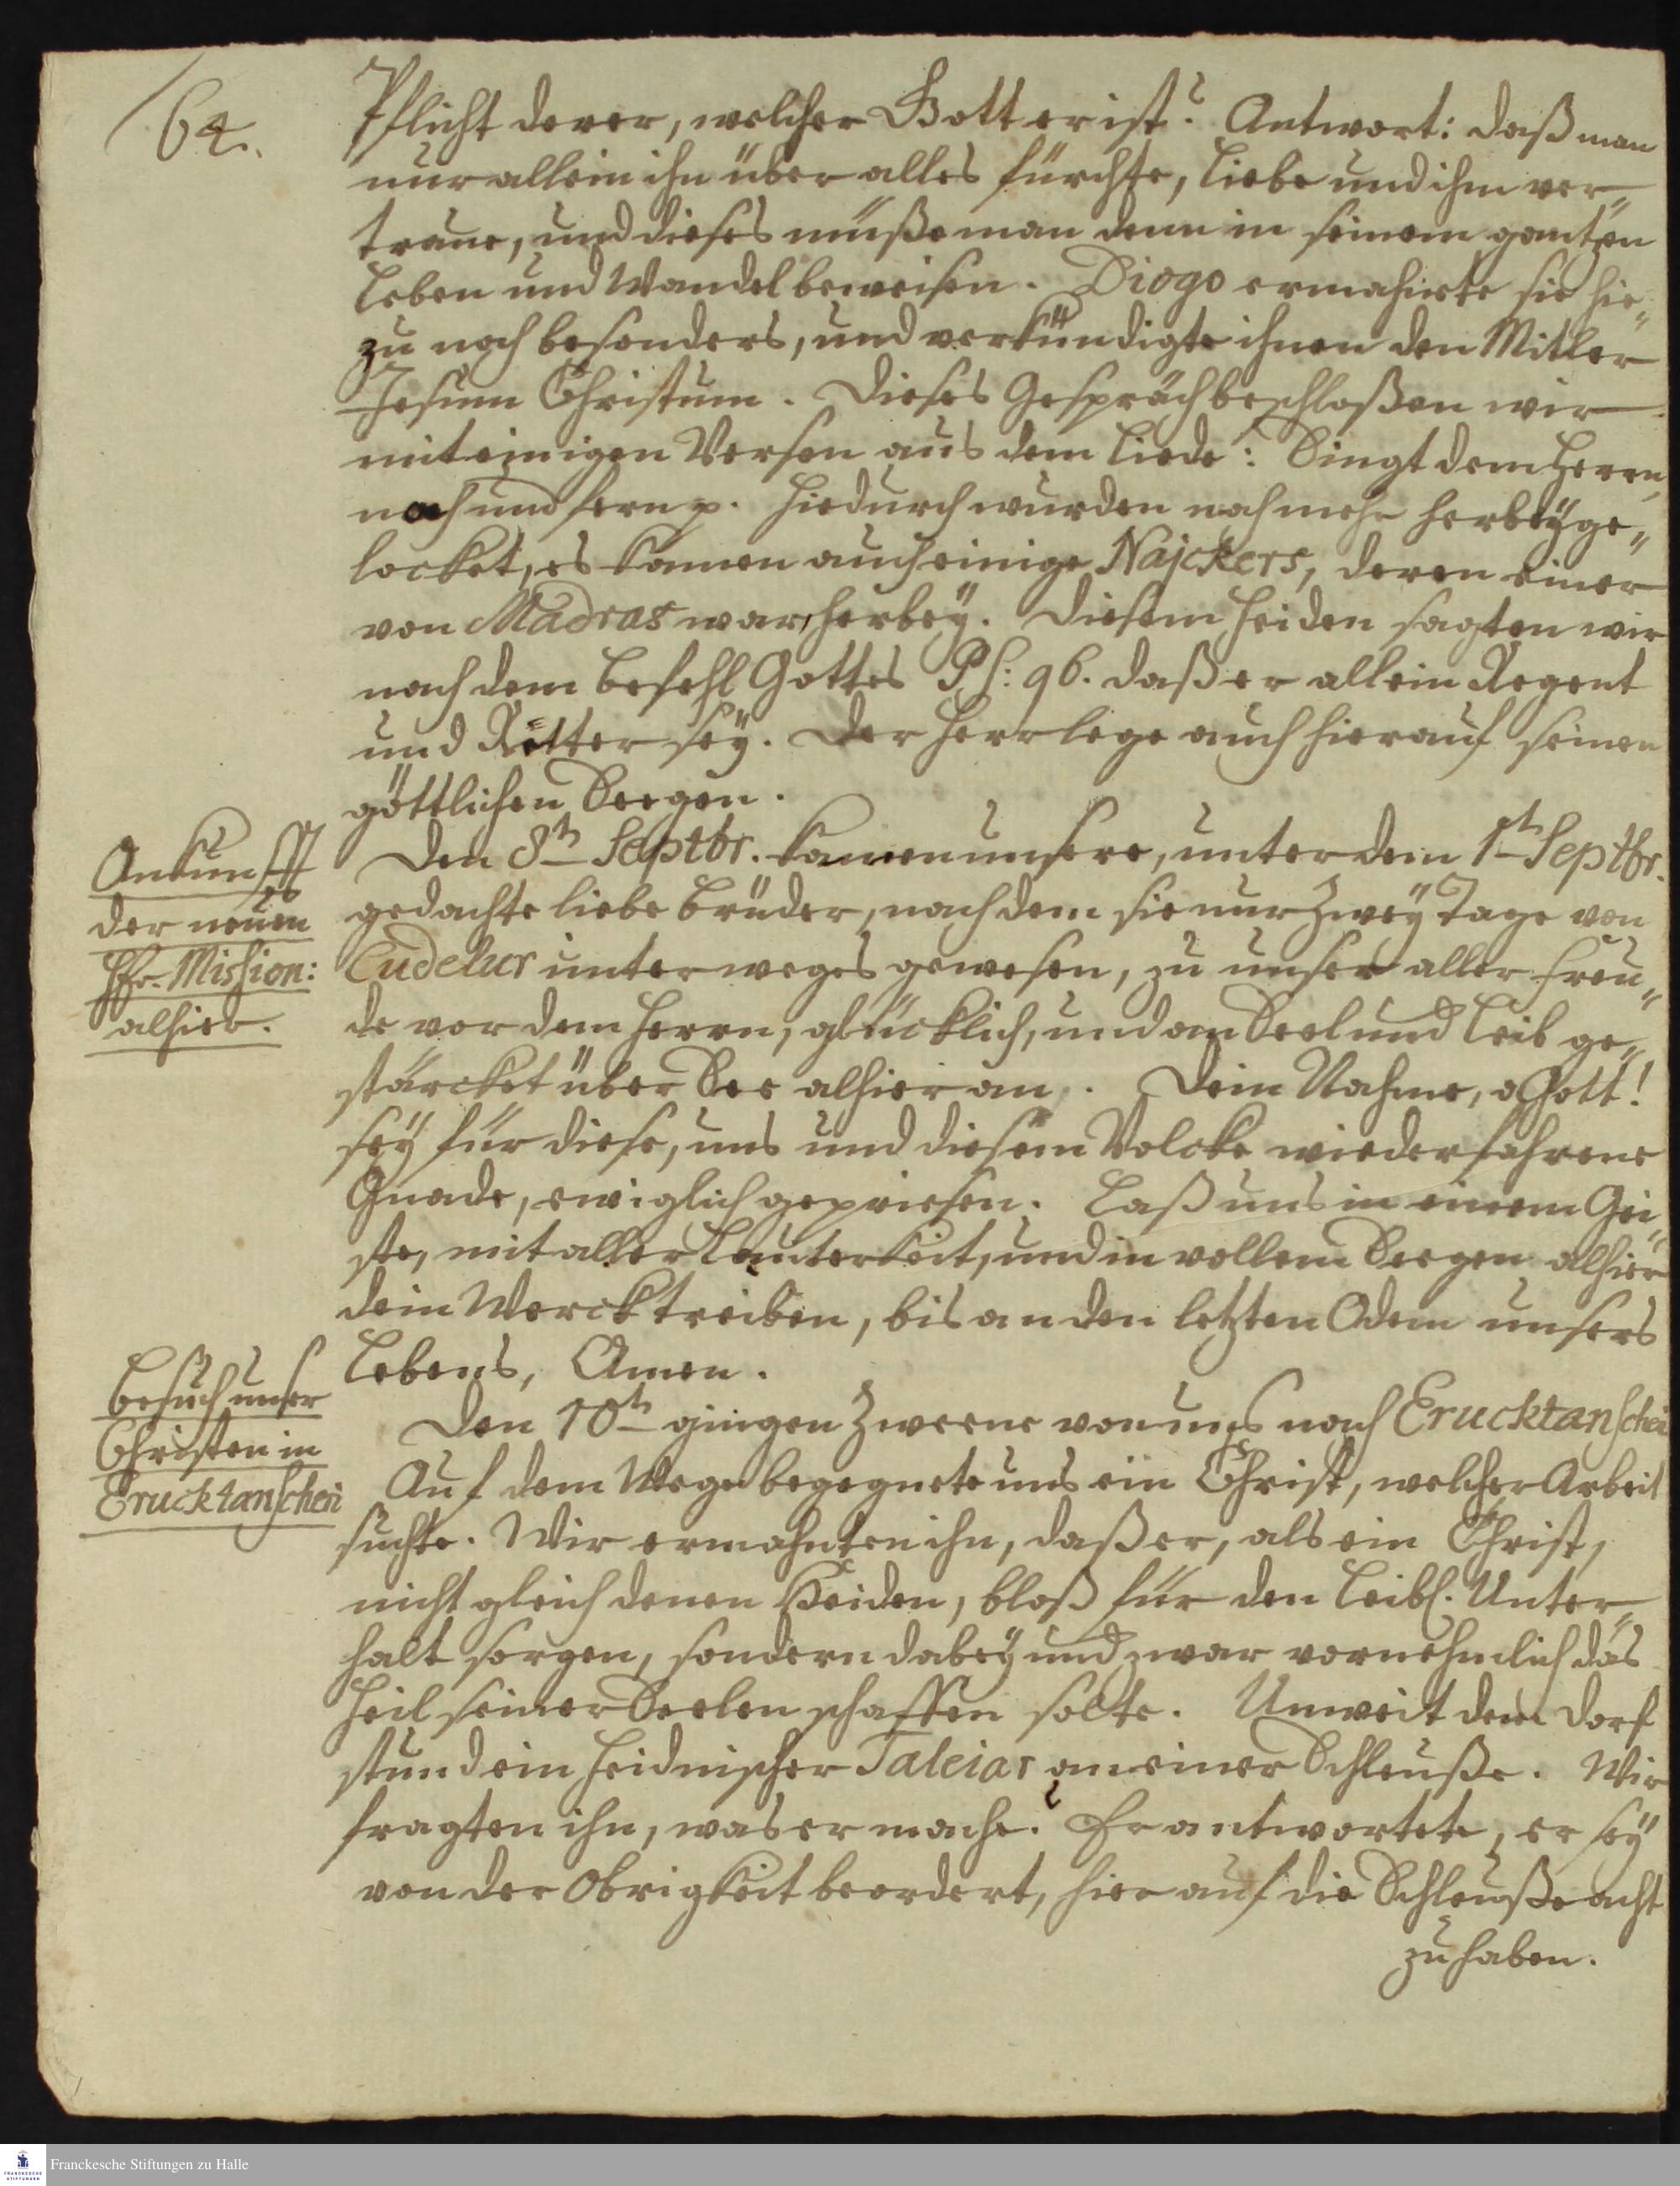 64.
Pflicht derer, welcher Gott er ist? Antwort: daß man
nur allein ihn über alles fürchte, liebe und ihm ver-
traue, und dieses müße man denn in seinem gantzen
Leben und Wandel beweisen. Diogo ermahnte sie hie-
zu noch besonders, und verkündigte ihnen den Mitler
Jesum Christum. Dieses Gespräch beschloßen wir
mit einigen Versen aus dem Liede: Singt dem Herrn,
nah und fern p. Hiedurch wurden noch mehr herbeyge-
locket, es kamen auch einige Najckers, deren einer
von Madras war, herbey. Diesem Heiden sagten wir
nach dem Befehl Gottes Ps: 96. daß er allein Regent
und Retter sey. Der Herr lege auch hierauf seinen
göttlichen Seegen.
Ankunfft
der neuen
HEr. Mission:
alhier.
Den 8t Septbr. kamen unsere, unter dem 1t Septbr.
gedachte liebe Brüder, nach dem sie nur zwey Tage von
Cudelur unterweges gewesen, zu unser aller Freu-
de vor dem Herrn, glücklich, und an Seel und Leib ge-
stärcket über See alhier an. Dein Nahme, o Gott!
sey für diese, uns und diesem Volcke wiederfahrene
Gnade, ewiglich gepriesen. Laß uns in einem Gei-
ste, mit aller Lauterkeit, und in vollem Seegen alhier
dein Werck treiben, bis an den letzten Odem unsers
Lebens, Amen.
Besuch unser
Christen in
Erucktanscheri
Den 10t gingen zweene von uns nach Erucktanscheri
Auf dem Wege begegnete uns ein Christ, welcher Arbeit
suchte. Wir ermahnten ihn, daß er, als ein Christ,
nicht gleich denen Heiden, bloß für den leibl. Unter-
halt sorgen, sondern dabey und zwar vornehmlich das
Heil seiner Seelen schaffen solte. Unweit dem Dorf
stund ein heidnischer Taleiar an einer Schleuße. Wir
fragten ihn, was er mache? Er antwortete, er sey
von der Obrigkeit beordert, hier auf die Schleuße acht
zu haben.
Franckesche Stiftungen zu Halle